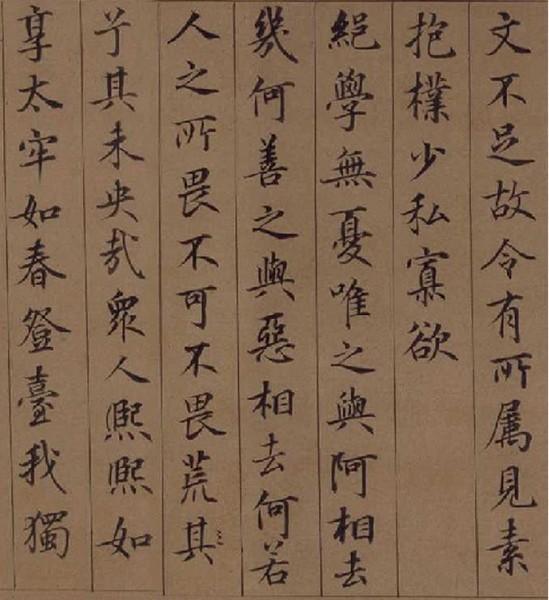 文不足故令有所属見素
抱樸少私寡欲
絕學無憂唯之與阿相去
幾何善之與惡相去何若
人之所畏不可不畏荒其
亍其未央哉衆人熙熙如
享太牢如春登臺我獨